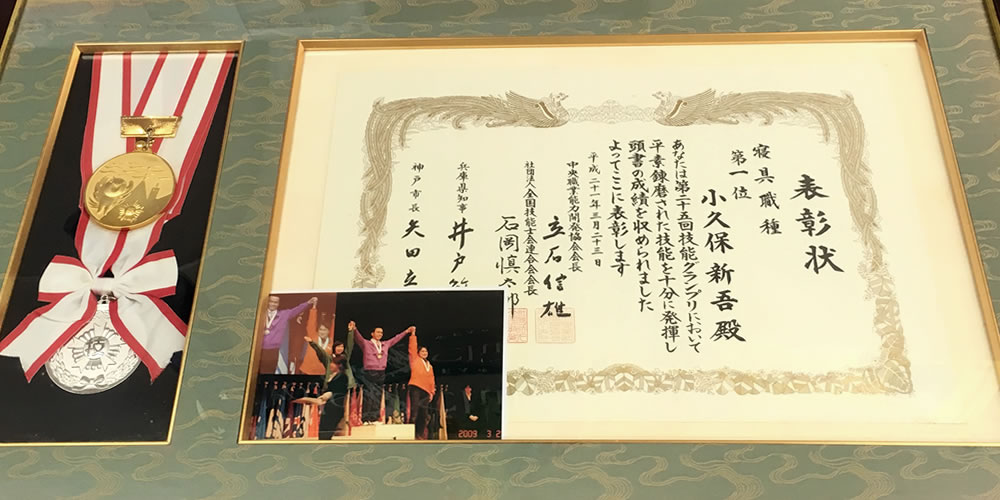 表彰状
寝具職種
第一位
小久保新吾殿
あなたは第二十五回技能グランプリにおいて
平素錬磨された技能を十分に発揮し
頭書の成績を収められました
よってここに表彰します
平成二十一年三月二十三日
中央職業能力開発協会会長
立石信雄
社団法人全国技能士会連合会会長
石岡慎太郎
兵庫県知事
井戸
神戸市長
矢田立
技
2009 3 2